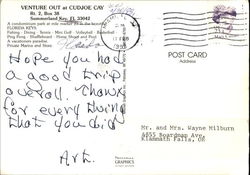 VENTURE OUT at CUDJOE CAY
Rt. 2, Box 38
Summerland Key, FL 33042
A condominium park at mile marker 23 in the beautiful
FLORIDA KEYS
Fishing - Diving - Tennis - Mini Golf - Volleyball - Basketball
Ping Pong - Shuffleboard - Horse Shoes and Pool
A vacationers paradise.
Private Marina and Store.
POST CARD
Address
Hope you had
a good trip
overall. Thanks
for everything
that you did
Art.
Mr. and Mrs. Wayne Milburn
6855 Boardman Ave.
Klammath Falls, OR
GRAPHICS